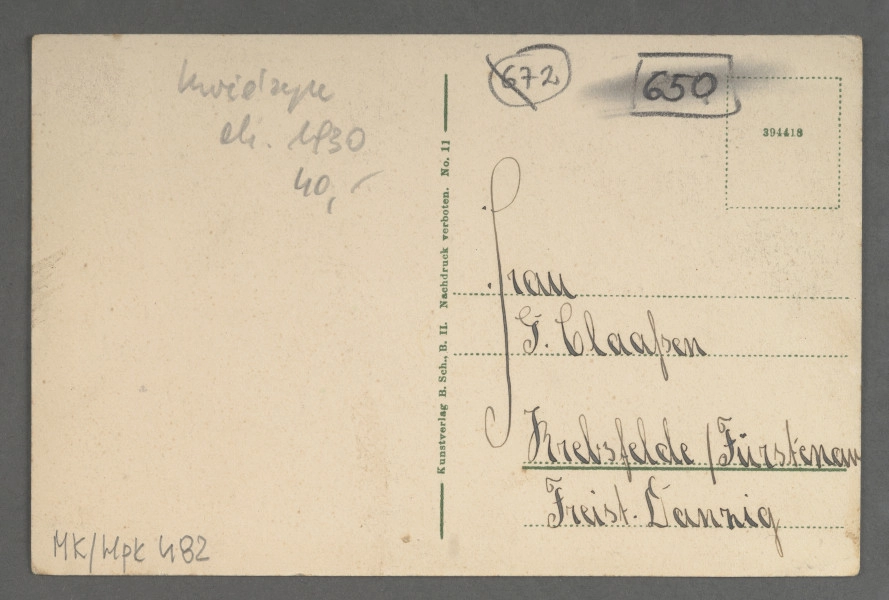 Kwidzyn
ok. 1930
40,-
672
650
394418
Kunstverlag B. Sch., B. II. Nachdruck verboten. No. 11
Frau
G. Claaßen
Krebsfelde / Fürstenau
Freist. Danzig
MK/Wpk 482